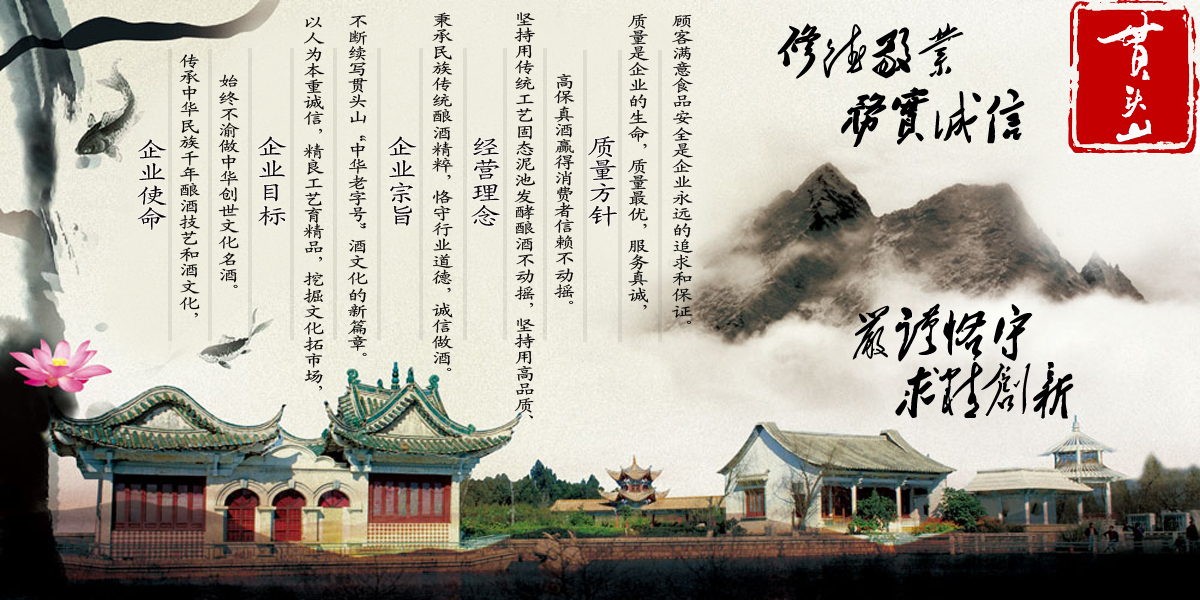 企业使命
传承中华民族千年酿酒技艺和酒文化，
始终不渝做中华创世文化名酒。
企业目标
以人为本重诚信，精良工艺育精品，挖掘文化拓市场，
不断续写贯头山“中华老字号”酒文化的新篇章。
企业宗旨
秉承民族传统酿酒精粹，恪守行业道德，诚信做酒。
经营理念
坚持用传统工艺固态泥池发酵酿酒不动摇，坚持用高品质、
高保真酒赢得消费者信赖不动摇。
质量方针
质量是企业的生命，质量最优，服务真诚，
顾客满意食品安全是企业永远的追求和保证。
修德敬業
務實诚信
嚴谨恪守
求精創新
貫头山